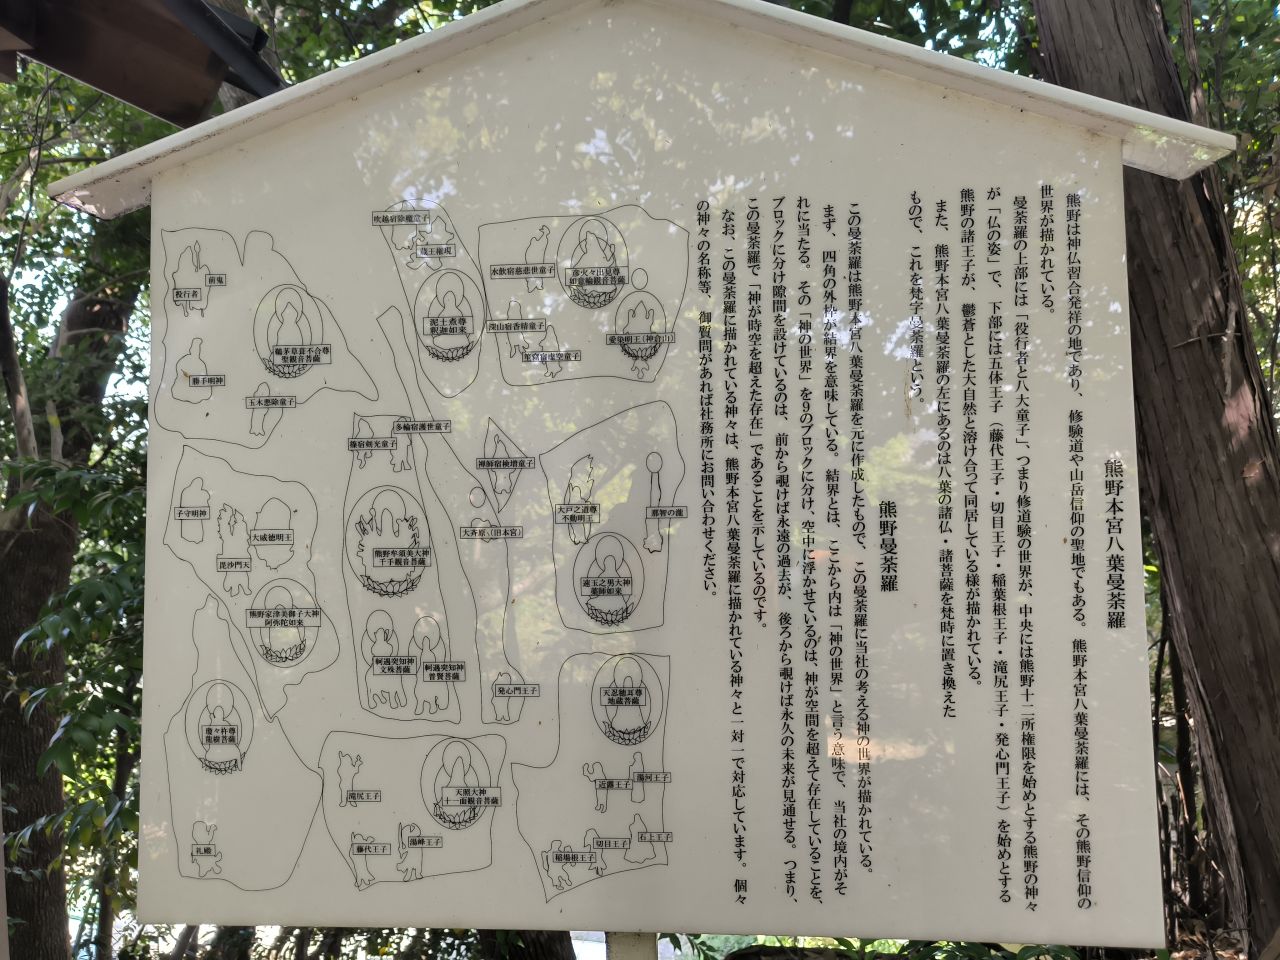 熊野本宮八葉曼荼羅
熊野は神仏習合発祥の地であり、修験道や山岳信仰の聖地でもある。熊野本宮八葉曼荼羅には、その熊野信仰の
世界が描かれている。
曼荼羅の上部には「役行者と八大童子」、つまり修道験の世界が、中央には熊野十二所権限を始めとする熊野の神々
が「仏の姿」で、下部には五体王子（藤代王子・切目王子・稲葉根王子・滝尻王子・発心門王子）を始めとする
熊野の諸王子が、鬱蒼とした大自然と溶け合って同居している様が描かれている。
また、熊野本宮八葉曼荼羅の左にあるのは八葉の諸仏・諸菩薩を梵時に置き換えた
もので、これを梵字曼荼羅という。
熊野曼荼羅
この曼荼羅は熊野本宮八葉曼荼羅を元に作成したもので、この曼荼羅に当社の考える神の世界が描かれている。
まず、四角の外枠が結界を意味している。結界とは、ここから内は「神の世界」と言う意味で、当社の境内がそ
れに当たる。その「神の世界」を9のブロックに分け、空中に浮かせているのは、神が空間を超えて存在していることを、
ブロックに分け隙間を設けているのは、前から覗けば永遠の過去が、後ろから覗けば永久の未来が見通せる。つまり、
この曼荼羅で「神が時空を超えた存在」であることを示しているのです。
なお、この曼荼羅に描かれている神々は、熊野本宮八葉曼荼羅に描かれている神々と一対一で対応しています。個々
の神々の名称等、御質問があれば社務所にお問い合わせください。
吹越宿除魔童子
蔵王権現
泥土煮尊
釈迦如来
水飲宿慈悲世童子
彦火々出見尊
如意輪観音菩薩
深山宿香精童子
愛染明王（神倉山）
前鬼
役行者
鵜茅草葺不合尊
聖観音菩薩
勝手明神
玉木悪除童子
多輪宿護世童子
篠宿剣光童子
禅師宿検増童子
大斉原（旧本宮）
大戸之道尊
不動明王
那智の瀧
速玉之男大神
薬師如来
子守明神
大威徳明王
毘沙門天
熊野家津美御子大神
阿弥陀如来
熊野牟須美大神
千手観音菩薩
軻遇突知神
文殊菩薩
軻遇突知神
普賢菩薩
発心門王子
天忍穂耳尊
地蔵菩薩
瓊々杵尊
龍樹菩薩
礼殿
滝尻王子
天照大神
十一面観音菩薩
藤代王子
湯峰王子
近露王子
湯河王子
石上王子
切目王子
稲場根王子